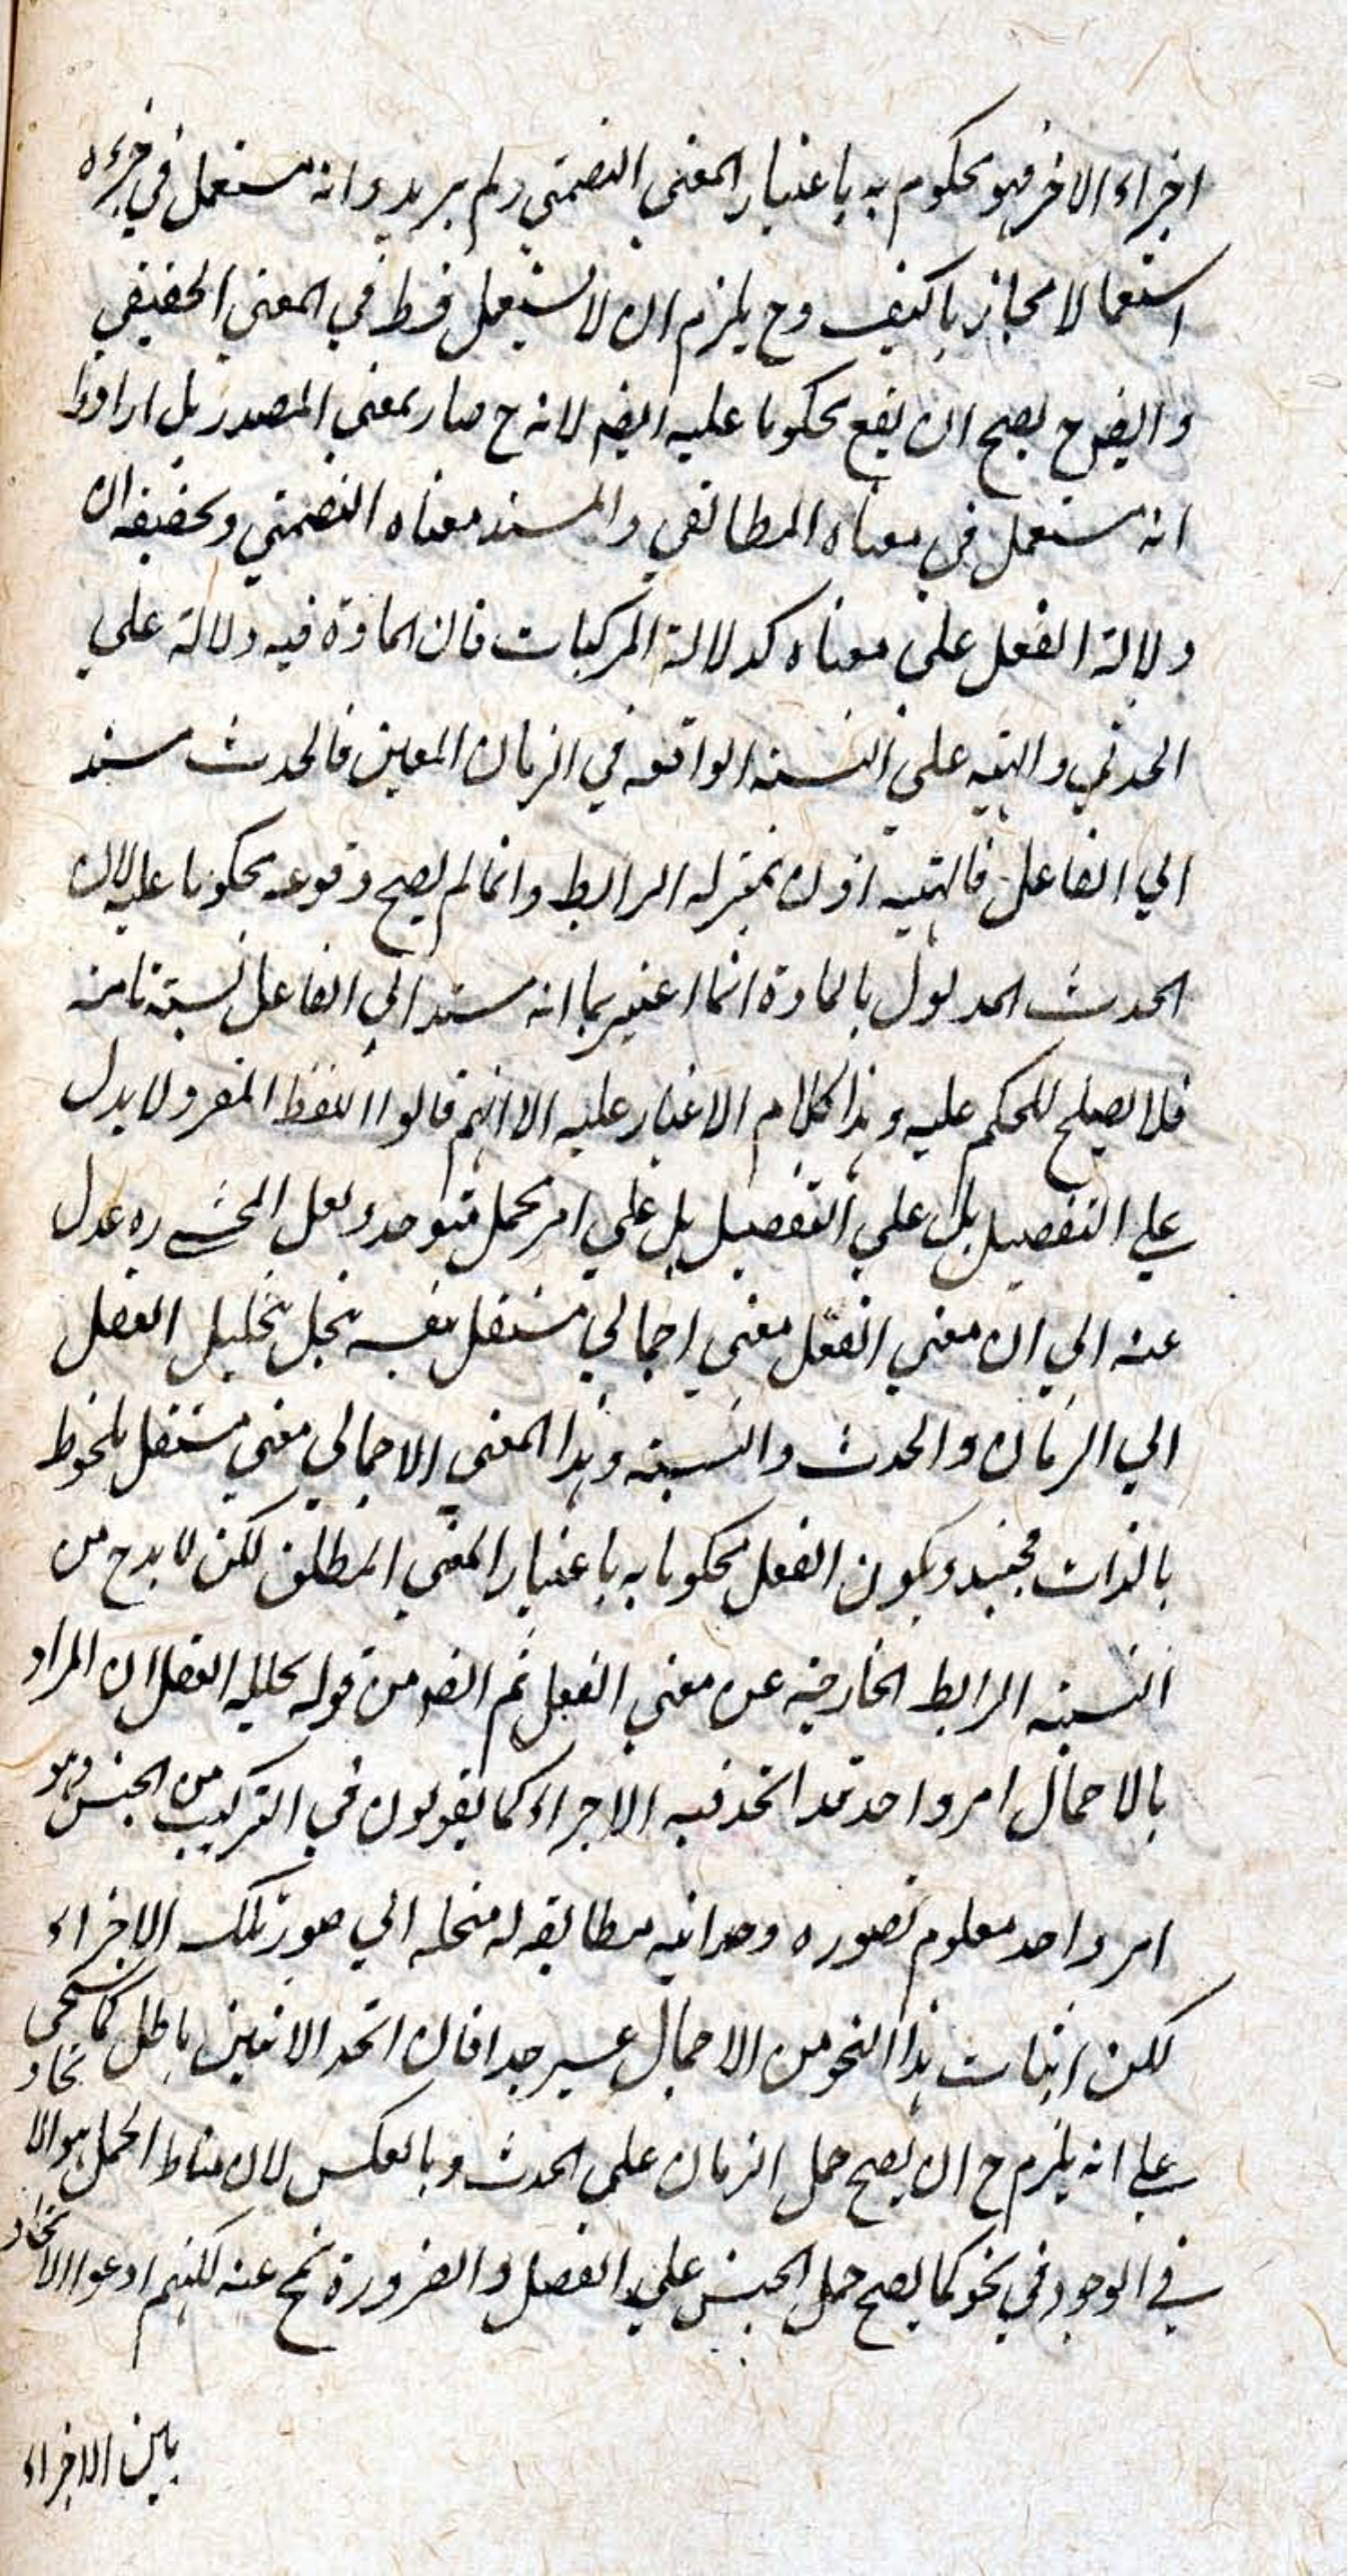 اجزاء الاخر فهو محكوم به باعتبار المعنى التضمني ولم يريدوا انه مستعمل في جزءه
استعمالا مجازيا كيف وح يلزم ان لا يستعمل قط في المعنى الحقيقي
وايضا ح يصح ان يقع محكوما عليه ايضا لانه ح صار بمعنى المصدر بل ارادوا
انه مستعمل في معناه المطابقي والمسند معناه التضمني وتحقيقه ان
دلالة الفعل على معناه كدلالة المركبات فان المادة فيه دلالة على
الحدث والهيئة على النسبة الواقعة في الزمان المعين فالحدث مسند
الى الفاعل فالهيئة اذن بمنزلة الرابط وانما لم يصح وقوعه محكوما عليه لان
الحدث المدلول بالمادة انما اعتبر بما انه مسند الى الفاعل نسبة تامة
فلا يصلح للحكم عليه وهذا كلام لا غبار عليه الا انهم قالوا اللفظ المفرد لا يدل
على التفصيل بل على التفصيل بل على امر مجمل متوحد ولعل المحشي ره عدل
عنه الى ان معنى الفعل معنى اجمالي مستقل بنفسه ينحل بتحليل العقل
الى الزمان والحدث والنسبة وهذا المعنى الاجمالي معنى مستقل ملحوظ
بالذات فحينئذ يكون الفعل محكوما به باعتبار المعنى المطابقي لكن لا بد ح من
النسبة الرابط الخارجية عن معنى الفعل ثم المفهوم من قوله يحلله العقل ان المراد
بالاجمال امر واحد قد اتحد فيه الاجزاء كما يقولون في التركيب من الجنس وهو
امر واحد معلوم بصورة وحدانية مطابقة له منحلة الى صور تلك الاجزاء
لكن اثبات هذا النحو من الاجمال عسير جدا فان اتحاد الاثنين باطل كما سيجيء
على انه يلزم ح ان يصح حمل الزمان على الحدث وبالعكس لان مناط الحمل هو الاتحاد
في الوجود في نحو كما يصح حمل الجنس على الفصل والضرورة تمج عنه لكنهم ادعوا الاتحاد
بين الاجزاء